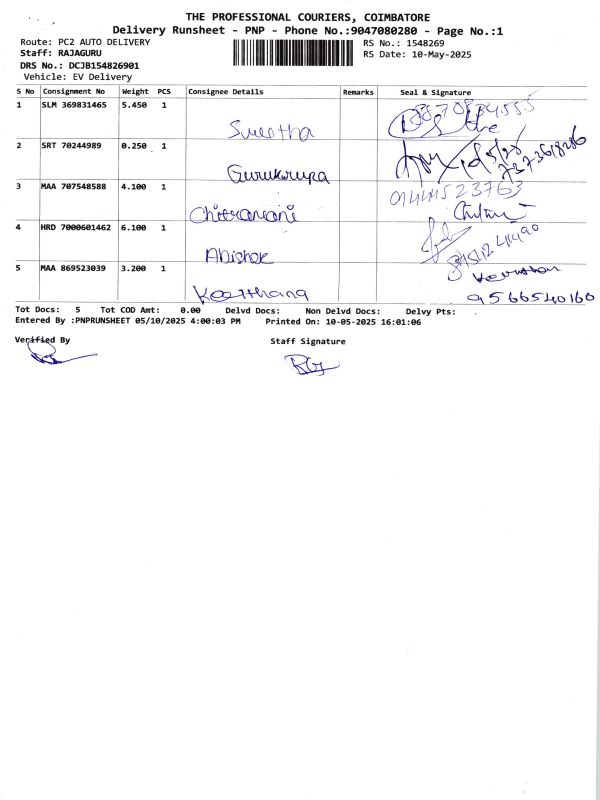 THE PROFESSIONAL COURIERS, COIMBATORE
Delivery Runsheet - PNP - Phone No.:9047080280 - Page No.:1
Route: PC2 AUTO DELIVERY RS No.: 1548269
Staff: RAJAGURU RS Date: 10-May-2025
DRS No.: DCJB154826901
Vehicle: EV Delivery
S No Consignment No Weight PCS Consignee Details Remarks Seal & Signature
1 SLM 369831465 5.450 1
2 SRT 70244989 0.250 1
Gurukrupa
3 MAA 707548588 4.100 1
Chitramani
4 HRD 7000601462 6.100 1
Abishek
5 MAA 869523039 3.200 1
Keerthana 9566540160
Tot Docs: 5 Tot COD Amt: 0.00 Delvd Docs: Non Delvd Docs: Delvy Pts:
Entered By :PNPRUNSHEET 05/10/2025 4:00:03 PM Printed On: 10-05-2025 16:01:06
Verified By Staff Signature